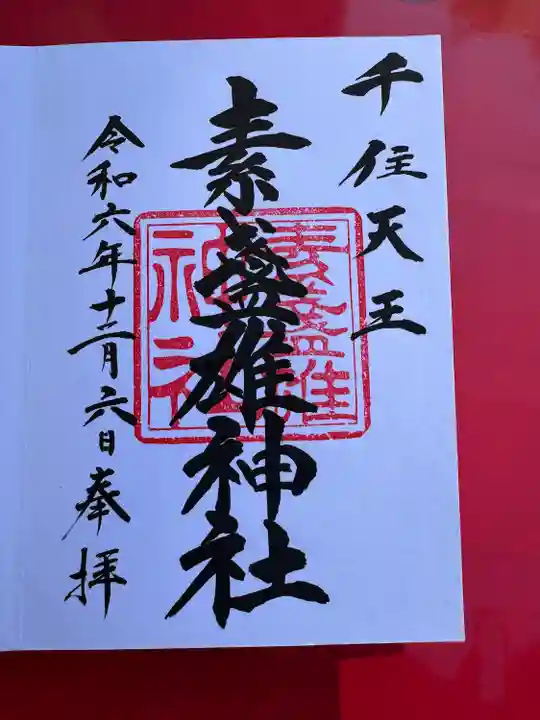 千住天王
素盞雄神社
素盞雄
神社
令和六年十二月六日奉拝